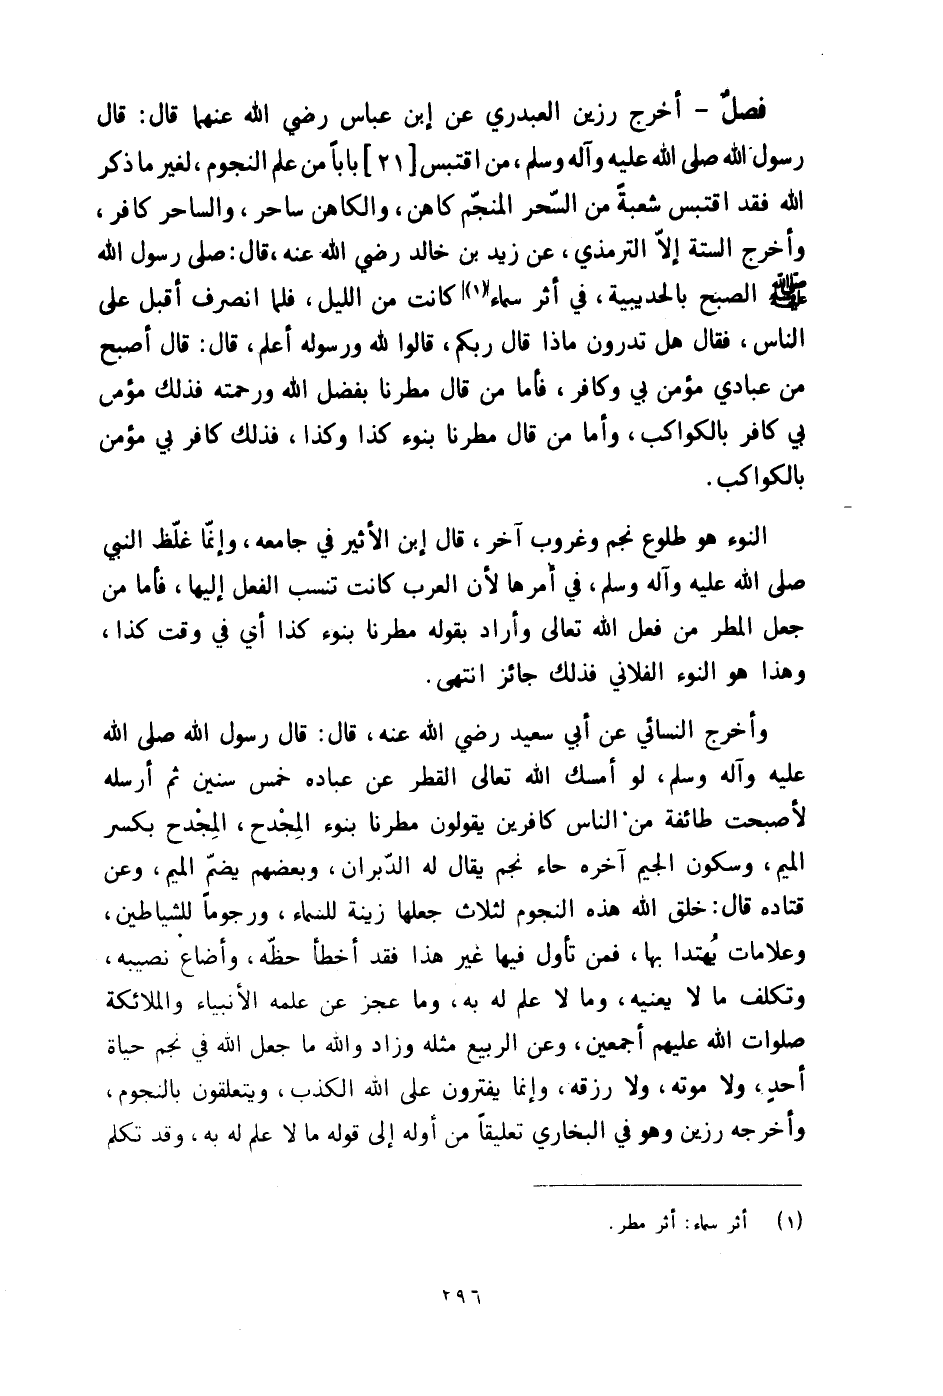 فصلٌ - أخرج رزين العبدري عن إبن عباس رضي الله عنهما قال: قال
رسول الله صلى الله عليه وآله وسلم، من اقتبس [٢١] باباً من علم النجوم، لغير ما ذكر
الله فقد اقتبس شعبةً من السّحر المنجّم كاهن، والكاهن ساحر، والساحر كافر،
وأخرج الستة إلاّ الترمذي، عن زيد بن خالد رضي الله عنه، قال: صلى رسول الله
ﷺ الصبح بالحديبية، في أثر سماء(١) كانت من الليل، فلما انصرف أقبل على
الناس، فقال هل تدرون ماذا قال ربكم، قالوا لله ورسوله أعلم، قال: قال أصبح
من عبادي مؤمن بي وكافر، فأما من قال مطرنا بفضل الله ورحمته فذلك مؤمن
بي كافر بالكواكب، وأما من قال مطرنا بنوء كذا وكذا، فذلك كافر بي مؤمن
بالكواكب.
النوء هو طلوع نجم وغروب آخر، قال إبن الأثير في جامعه، وإنّما غلّظ النبي
صلى الله عليه وآله وسلم، في أمرها لأن العرب كانت تنسب الفعل إليها، فأما من
جعل المطر من فعل الله تعالى وأراد بقوله مطرنا بنوء كذا أي في وقت كذا،
وهذا هو النوء الفلاني فذلك جائز انتهى.
وأخرج النسائي عن أبي سعيد رضي الله عنه، قال: قال رسول الله صلى الله
عليه وآله وسلم، لو أمسك الله تعالى القطر عن عباده خمس سنين ثم أرسله
لأصبحت طائفة من الناس كافرين يقولون مطرنا بنوء المِجْدح، المِجْدح بكسر
الميم، وسكون الجيم آخره حاء نجم يقال له الدّبران، وبعضهم يضمّ الميم، وعن
قتاده قال: خلق الله هذه النجوم لثلاث جعلها زينة للسماء، ورجوماً للشياطين،
وعلامات يُهتدا بها، فمن تأول فيها غير هذا فقد أخطأ حظّه، وأضاع نصيبه،
وتكلف ما لا يعنيه، وما لا علم له به، وما عجز عن علمه الأنبياء والملائكة
صلوات الله عليهم أجمعين، وعن الربيع مثله وزاد والله ما جعل الله في نجم حياة
أحدٍ، ولا موته، ولا رزقه، وإنما يفترون على الله الكذب، ويتعلقون بالنجوم،
وأخرجه رزين وهو في البخاري تعليقاً من أوله إلى قوله ما لا علم له به، وقد تكلم
(١) أثر سماء: أثر مطر.
٢٩٦